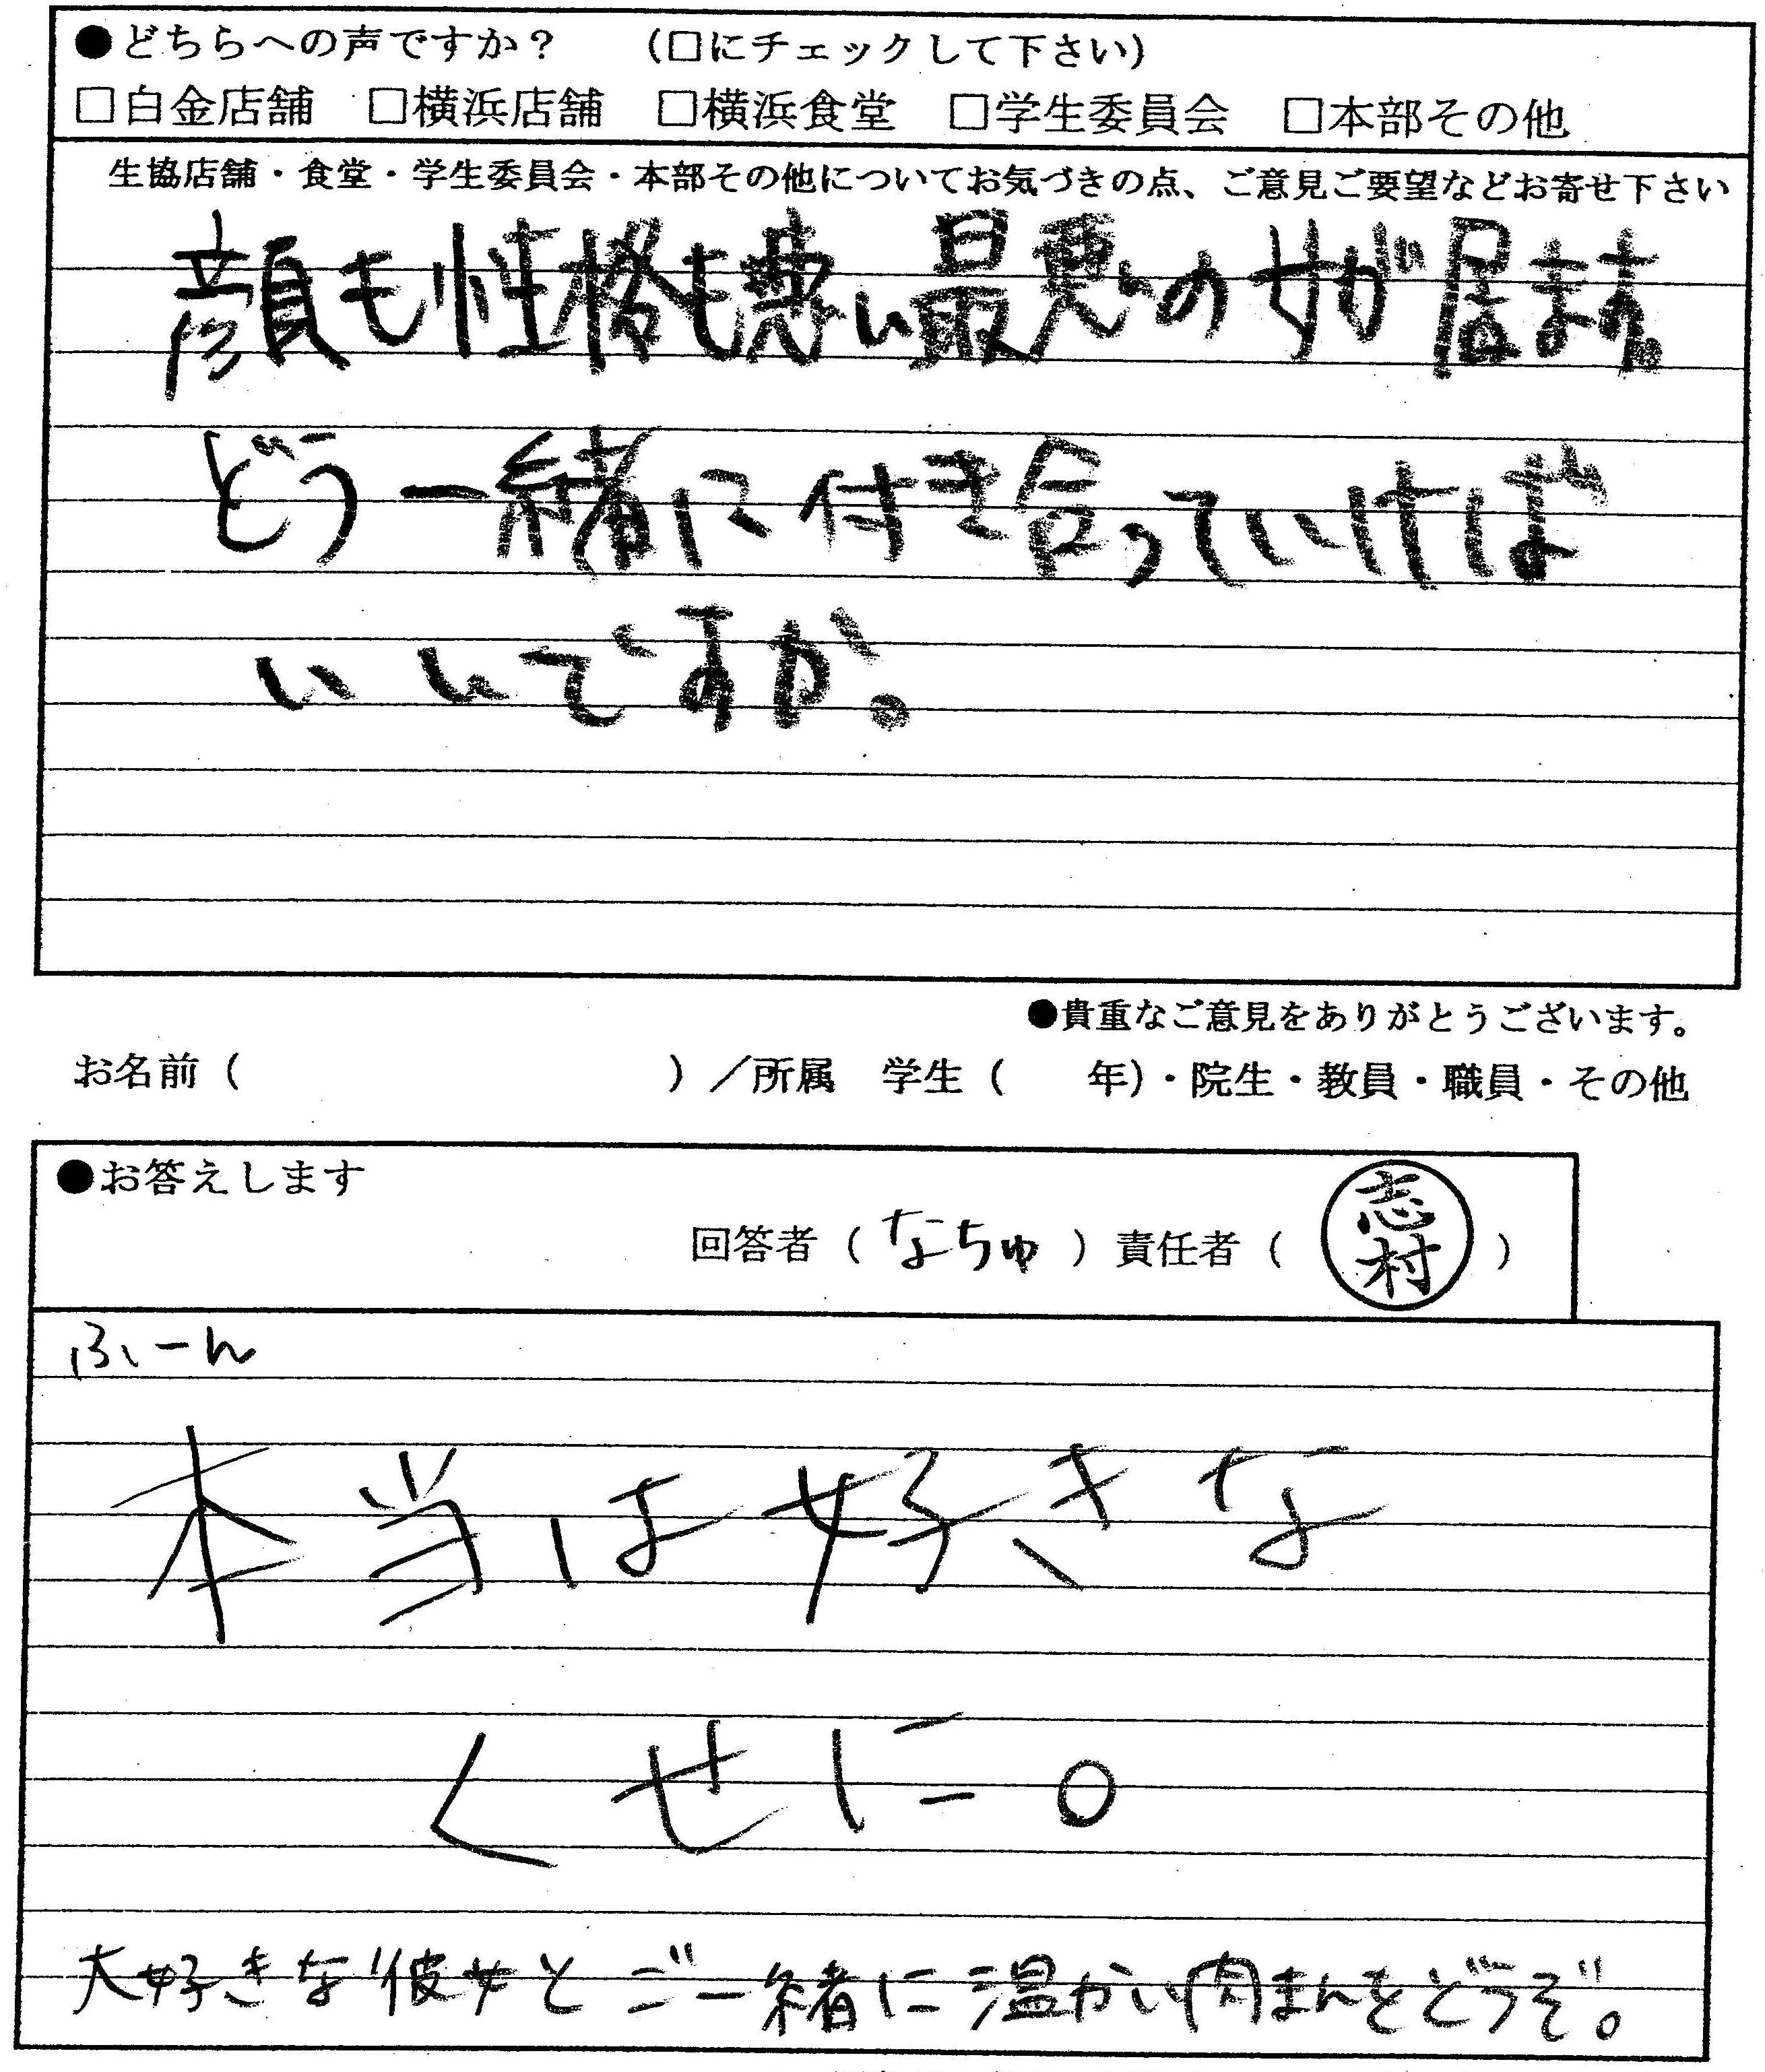 ●どちらへの声ですか？ （□にチェックして下さい）
□白金店舗 □横浜店舗 □横浜食堂 □学生委員会 □本部その他
生協店舗・食堂・学生委員会・本部その他についてお気づきの点、ご意見ご要望などお寄せ下さい
顔も性格も悪い最悪の女が居ます。
どう一緒に付き合っていけば
いいですか。
●貴重なご意見をありがとうございます。
お名前（ ）／所属 学生（ 年）・院生・教員・職員・その他
●お答えします
回答者（なちゅ）責任者（志村）
ふーん
本当は好きな
くせに。
大好きな彼女とご一緒に温かい肉まんをどうぞ。